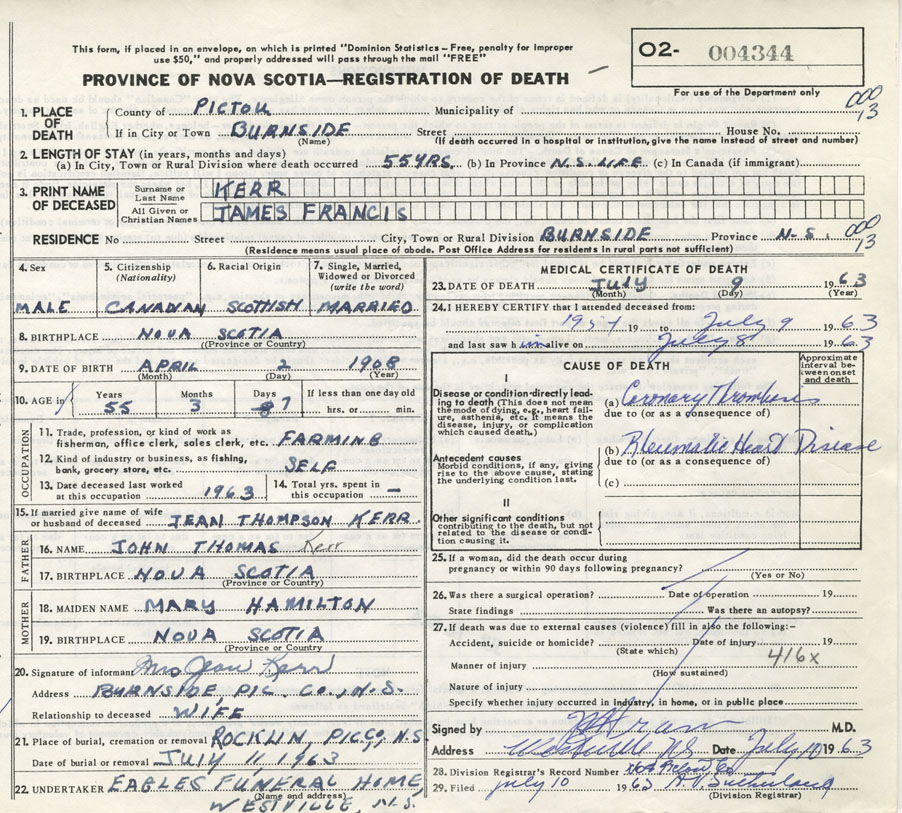 This form, if placed in an envelope, on which is printed "Dominion Statistics – Free, penalty for improper
use $50," and properly addressed will pass through the mail "FREE"
O2- 004344
PROVINCE OF NOVA SCOTIA—REGISTRATION OF DEATH
For use of the Department only
1. PLACE OF DEATH County of PICTOU Municipality of 000 13
If in City or Town BURNSIDE Street House No.
(Name) (If death occurred in a hospital or institution, give the name instead of street and number)
2. LENGTH OF STAY (in years, months and days)
(a) In City, Town or Rural Division where death occurred 55 YRS. (b) In Province N.S. LIFE (c) In Canada (if immigrant)
3. PRINT NAME OF DECEASED Surname or Last Name KERR
All Given or Christian Names JAMES FRANCIS
RESIDENCE No Street City, Town or Rural Division BURNSIDE Province N.S. 000 13
(Residence means usual place of abode. Post Office Address for residents in rural parts not sufficient)
4. Sex 5. Citizenship (Nationality) 6. Racial Origin 7. Single, Married, Widowed or Divorced (write the word)
MALE CANADIAN SCOTTISH MARRIED
8. BIRTHPLACE NOVA SCOTIA
(Province or Country)
9. DATE OF BIRTH APRIL 2 1908
(Month) (Day) (Year)
10. AGE in Years Months Days If less than one day old
55 3 7 hrs. or min.
OCCUPATION
11. Trade, profession, or kind of work as
fisherman, office clerk, sales clerk, etc. FARMING
12. Kind of industry or business, as fishing,
bank, grocery store, etc. SELF
13. Date deceased last worked
at this occupation 1963
14. Total yrs. spent in
this occupation –
15. If married give name of wife
or husband of deceased JEAN THOMPSON KERR
FATHER
16. NAME JOHN THOMAS Kerr
17. BIRTHPLACE NOVA SCOTIA
(Province or Country)
MOTHER
18. MAIDEN NAME MARY HAMILTON
19. BIRTHPLACE NOVA SCOTIA
(Province or Country)
20. Signature of informant Mrs Jean Kerr
Address BURNSIDE, PIC. CO., N.S.
Relationship to deceased WIFE
21. Place of burial, cremation or removal ROCKLIN PIC. CO, N.S
Date of burial or removal JULY 11, 1963
22. UNDERTAKER EAGLES FUNERAL HOME,
(Name and address)
WESTVILLE, N.S.
MEDICAL CERTIFICATE OF DEATH
23. DATE OF DEATH JULY 9 1963
(Month) (Day) (Year)
24. I HEREBY CERTIFY that I attended deceased from:
19 to July 9 1963
and last saw him alive on July 8 1963
CAUSE OF DEATH
Approximate interval between onset and death
I
Disease or condition directly leading to death (This does not mean the mode of dying, e.g., heart failure, asthenia, etc. It means the disease, injury, or complication which caused death.)
(a) Coronary Thrombosis
due to (or as a consequence of)
Antecedent causes
Morbid conditions, if any, giving rise to the above cause, stating the underlying condition last.
(b) Rheumatic Heart Disease
due to (or as a consequence of)
(c)
II
Other significant conditions
contributing to the death, but not related to the disease or condition causing it.
25. If a woman, did the death occur during
pregnancy or within 90 days following pregnancy?
(Yes or No)
26. Was there a surgical operation? Date of operation 19
State findings Was there an autopsy?
27. If death was due to external causes (violence) fill in also the following:–
Accident, suicide or homicide? Date of injury 19
(State which)
416x
Manner of injury
(How sustained)
Nature of injury
Specify whether injury occurred in industry, in home, or in public place
Signed by M.D.
Address Westville N.S. Date July 10 1963
28. Division Registrar's Record Number
29. Filed July 10 1963 Sutherland
(Division Registrar)